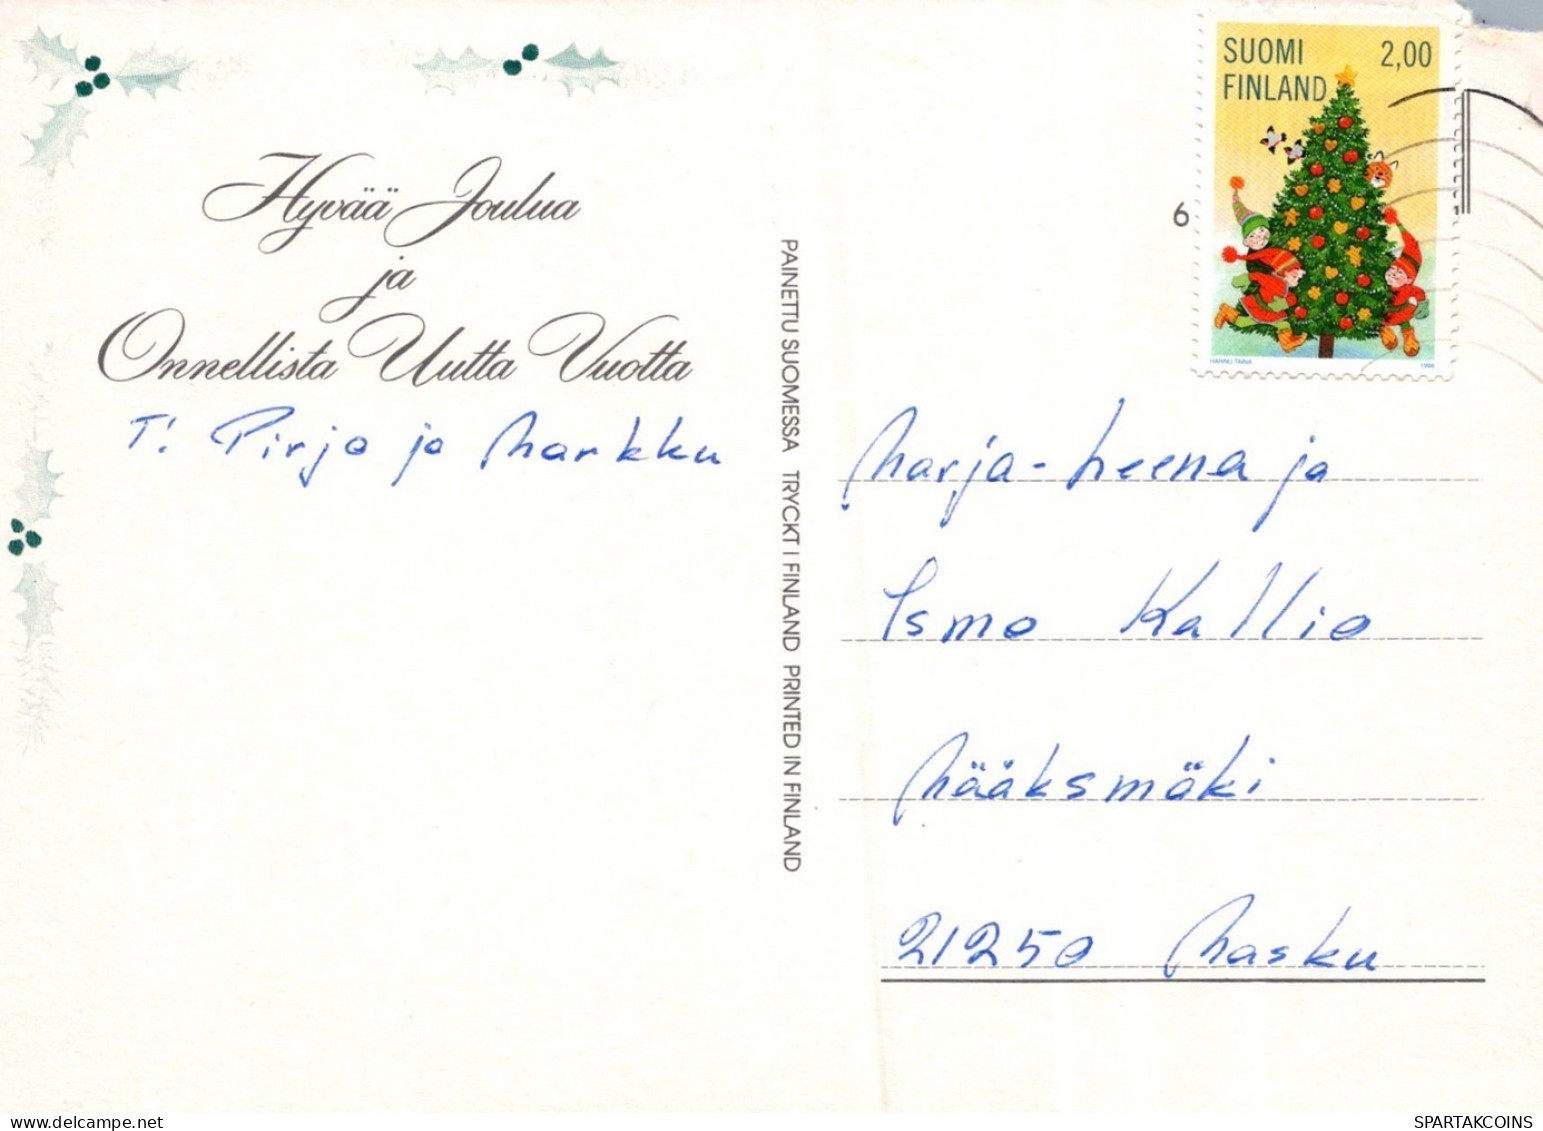 Hyvää Joulua
ja
Onnellista Uutta Vuotta
T: Pirjo ja Markku
PAINETTU SUOMESSA TRYCKT I FINLAND PRINTED IN FINLAND
SUOMI 2,00
FINLAND
HANNU TAINA
6
Marja-Leena ja
Ismo Kallio
Määksmäki
21250 Masku
SPARTAKCOINS